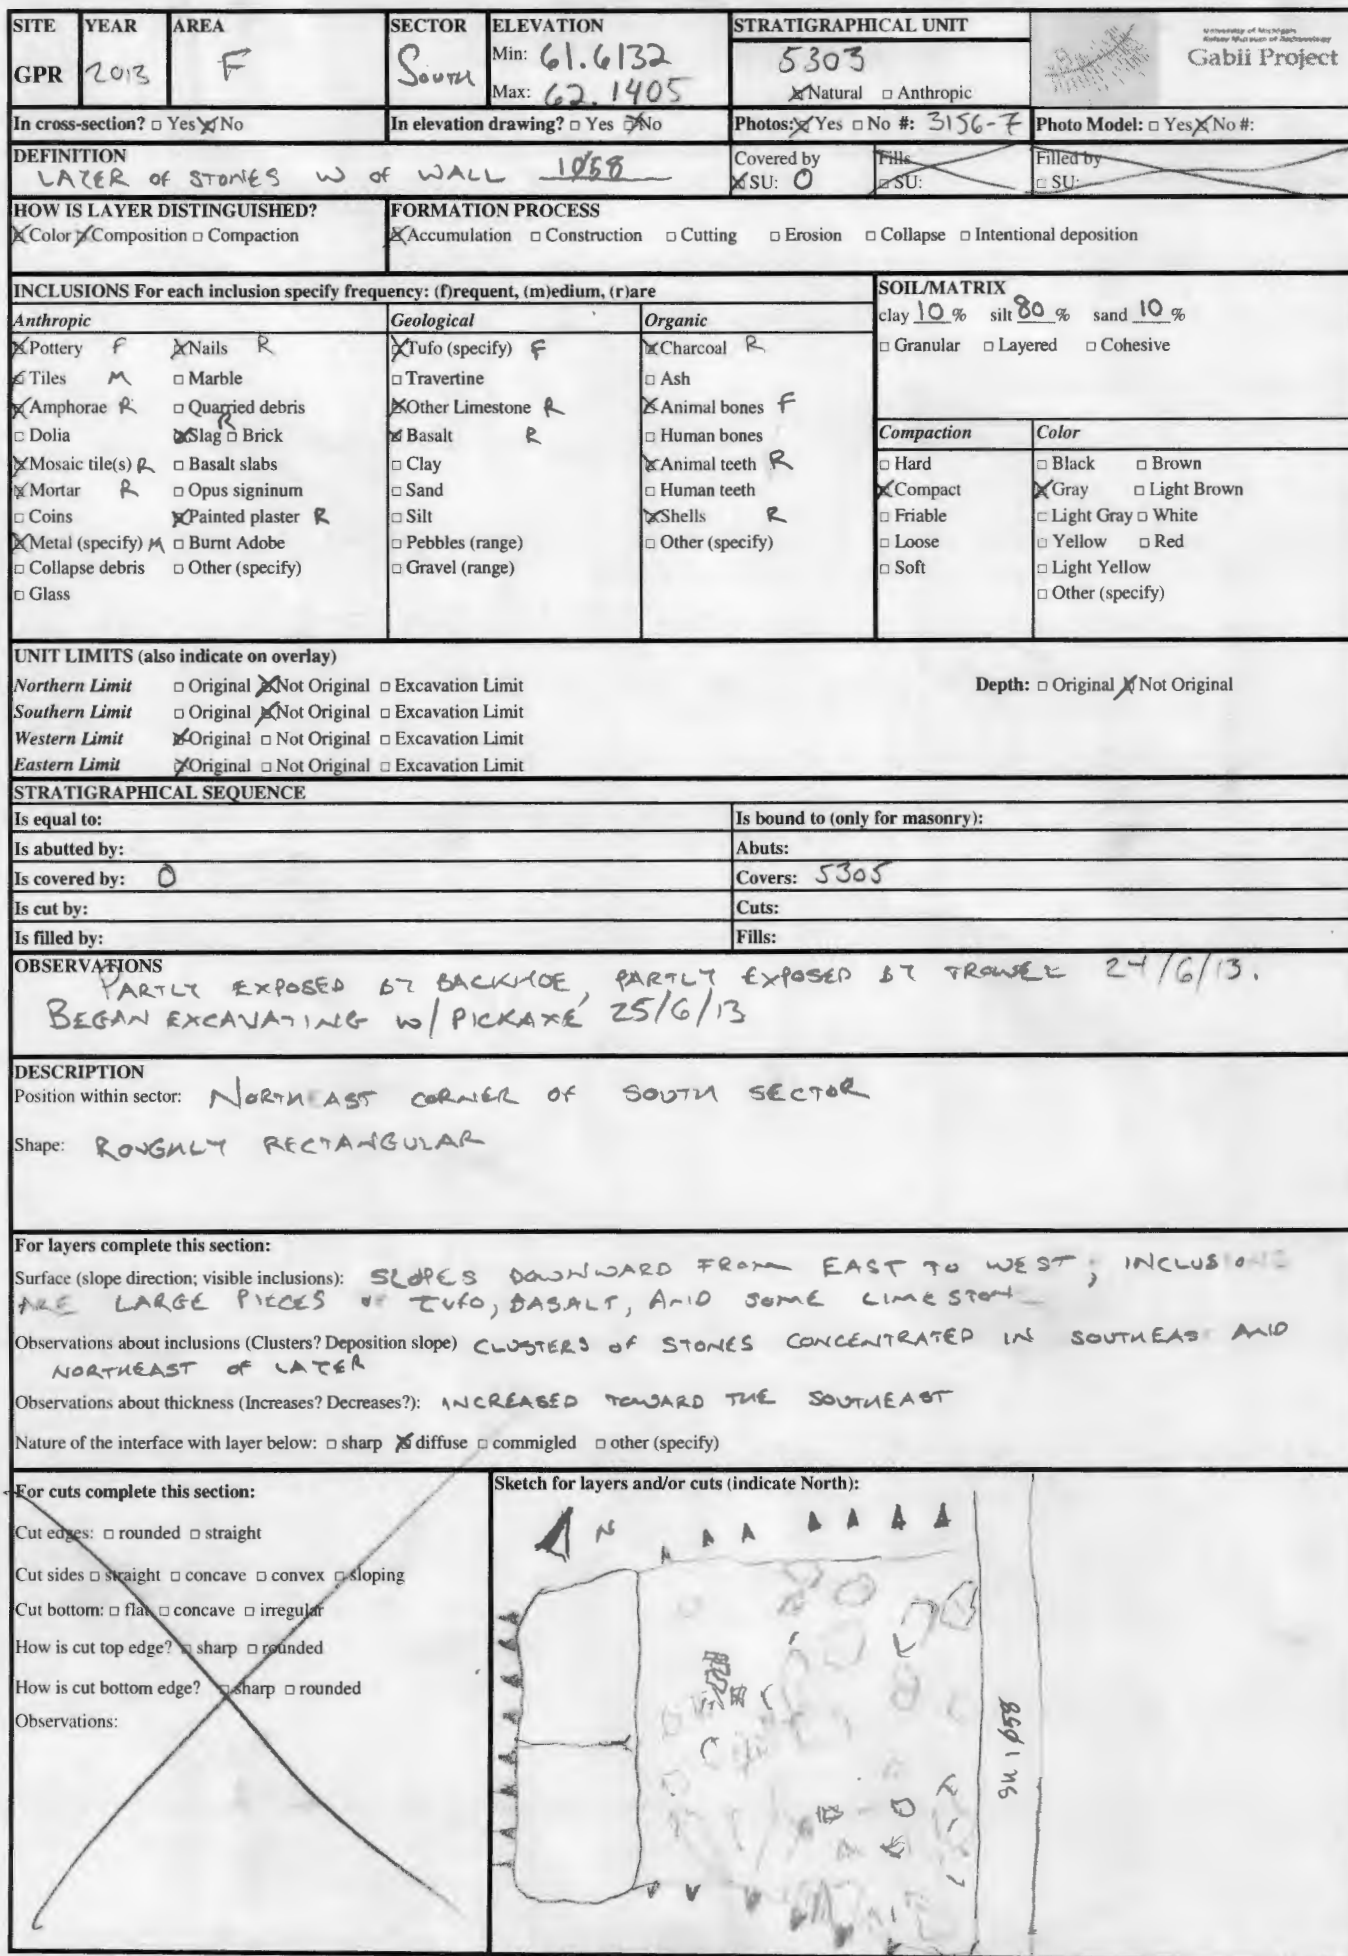 SITE YEAR AREA SECTOR ELEVATION STRATIGRAPHICAL UNIT
GPR 2013 F South Min: 61.6132 5303
Max: 62.1405 ☒Natural □ Anthropic
University of Michigan
Kelsey Museum of Archaeology
Gabii Project
In cross-section? □ Yes ☒No In elevation drawing? □ Yes ☒No Photos: ☒Yes □ No #: 3156-7 Photo Model: □ Yes ☒No #:
DEFINITION
LAYER OF STONES W OF WALL 1058
Covered by ☒SU: 0
Fills □SU:
Filled by □ SU:
HOW IS LAYER DISTINGUISHED?
☒Color ☒Composition □ Compaction
FORMATION PROCESS
☒Accumulation □ Construction □ Cutting □ Erosion □ Collapse □ Intentional deposition
INCLUSIONS For each inclusion specify frequency: (f)requent, (m)edium, (r)are
Anthropic
☒Pottery F ☒Nails R
☒Tiles M □ Marble
☒Amphorae R □ Quarried debris
□ Dolia ☒Slag R □ Brick
☒Mosaic tile(s) R □ Basalt slabs
☒Mortar R □ Opus signinum
□ Coins ☒Painted plaster R
☒Metal (specify) M □ Burnt Adobe
□ Collapse debris □ Other (specify)
□ Glass
Geological
☒Tufo (specify) F
□ Travertine
☒Other Limestone R
☒Basalt R
□ Clay
□ Sand
□ Silt
□ Pebbles (range)
□ Gravel (range)
Organic
☒Charcoal R
□ Ash
☒Animal bones F
□ Human bones
☒Animal teeth R
□ Human teeth
☒Shells R
□ Other (specify)
SOIL/MATRIX
clay 10 % silt 80 % sand 10 %
□ Granular □ Layered □ Cohesive
Compaction
□ Hard
☒Compact
□ Friable
□ Loose
□ Soft
Color
□ Black □ Brown
☒Gray □ Light Brown
□ Light Gray □ White
□ Yellow □ Red
□ Light Yellow
□ Other (specify)
UNIT LIMITS (also indicate on overlay)
Northern Limit □ Original ☒Not Original □ Excavation Limit Depth: □ Original ☒Not Original
Southern Limit □ Original ☒Not Original □ Excavation Limit
Western Limit ☒Original □ Not Original □ Excavation Limit
Eastern Limit ☒Original □ Not Original □ Excavation Limit
STRATIGRAPHICAL SEQUENCE
Is equal to: Is bound to (only for masonry):
Is abutted by: Abuts:
Is covered by: 0 Covers: 5305
Is cut by: Cuts:
Is filled by: Fills:
OBSERVATIONS
PARTLY EXPOSED BY BACKHOE, PARTLY EXPOSED BY TROWEL 24/6/13.
BEGAN EXCAVATING W/ PICKAXE 25/6/13
DESCRIPTION
Position within sector: NORTHEAST CORNER OF SOUTH SECTOR
Shape: ROUGHLY RECTANGULAR
For layers complete this section:
Surface (slope direction; visible inclusions): SLOPES DOWNWARD FROM EAST TO WEST; INCLUSIONS
ARE LARGE PIECES OF TUFO, BASALT, AND SOME LIMESTONE
Observations about inclusions (Clusters? Deposition slope) CLUSTERS OF STONES CONCENTRATED IN SOUTHEAST AND
NORTHEAST OF LAYER
Observations about thickness (Increases? Decreases?): INCREASED TOWARD THE SOUTHEAST
Nature of the interface with layer below: □ sharp ☒diffuse □ commigled □ other (specify)
For cuts complete this section:
Cut edges: □ rounded □ straight
Cut sides □ straight □ concave □ convex □ sloping
Cut bottom: □ flat □ concave □ irregular
How is cut top edge? □ sharp □ rounded
How is cut bottom edge? □ sharp □ rounded
Observations:
Sketch for layers and/or cuts (indicate North):
N
SU 1058